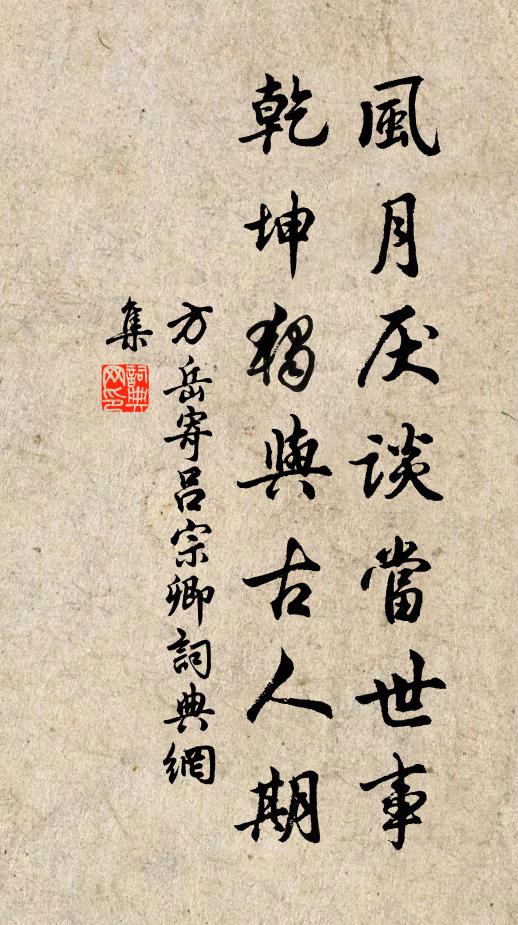 風月厌談當世事
乾坤獨與古人期
方岳寄呂宗卿詞典網
集
詞典网印